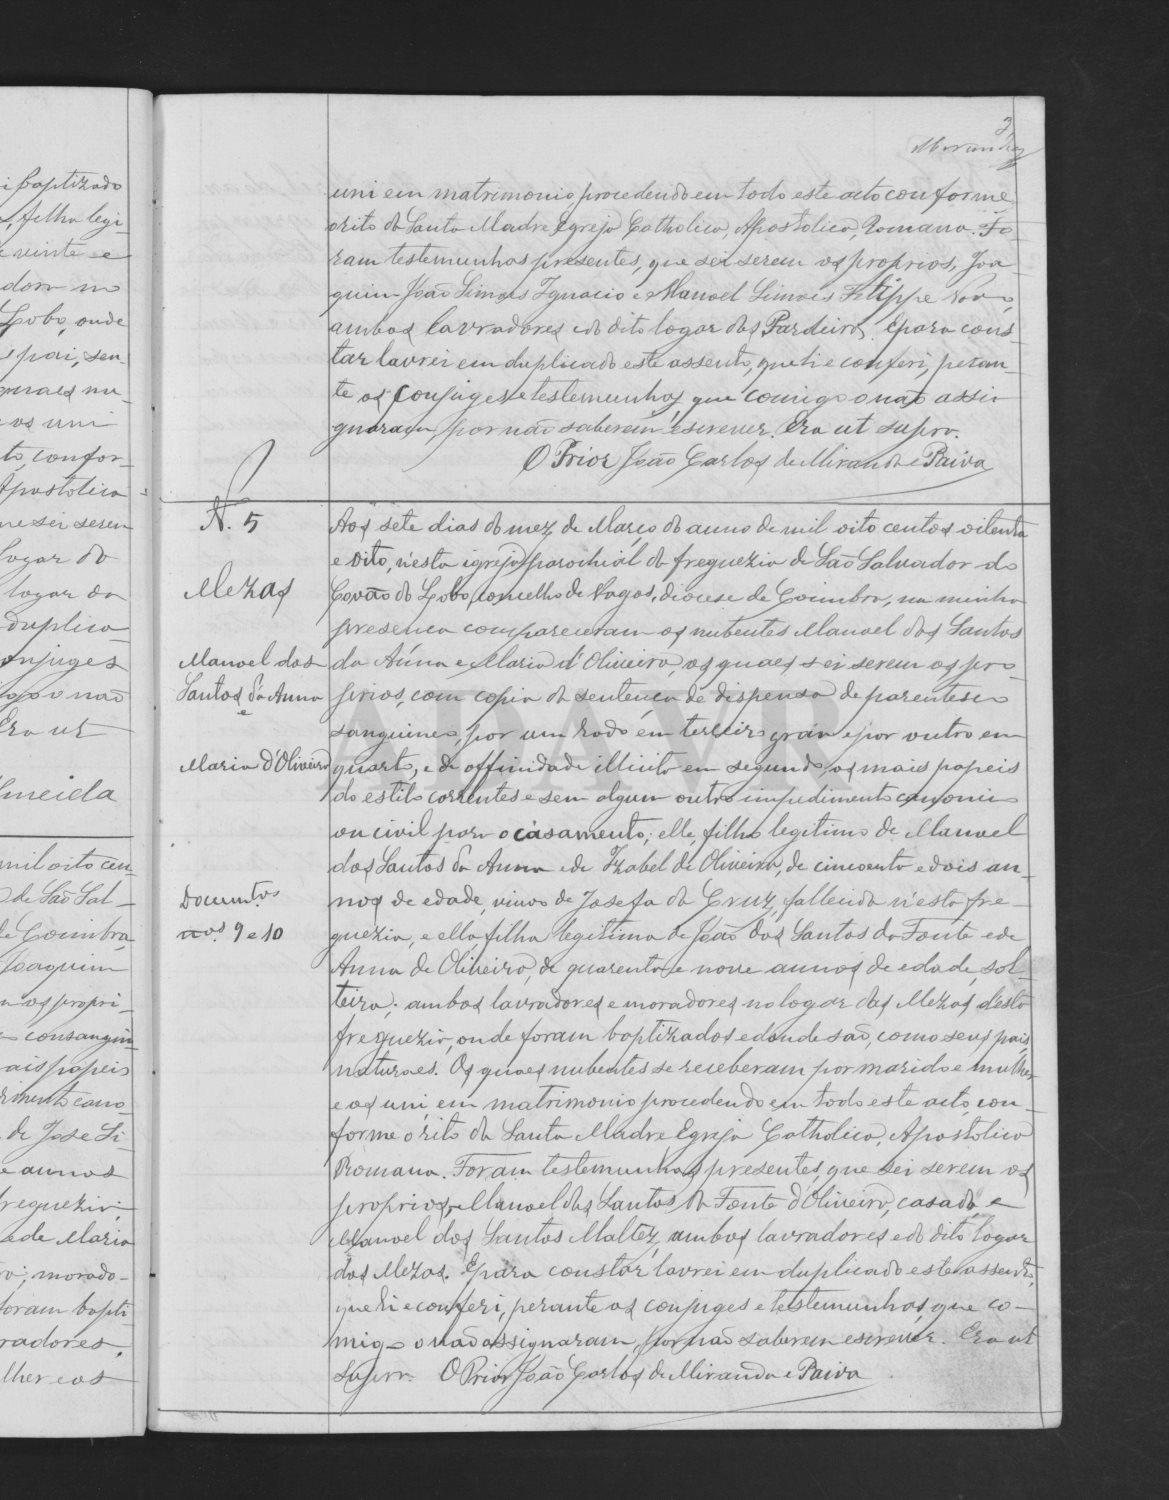 i baptizado
, filha legi-
e vinte e
dora no
Lobo, onde
e pai, sen-
quaes nu-
os uni
to, confor-
Apostolica
ne sei serem
logar do
logar da
duplica-
onjuges
igo o não
Era ut
lmeida
mil oito cen-
de São Sal-
de Coimbra
Joaquim
n os propri-
consangui-
ais papeis
rimento cano-
de Jose Si-
e annos
freguezia,
e de Maria
morado-
foram bapti-
radores.
lher e os
3
Miranda
uni em matrimonio procedendo em todo este acto conforme
o rito da Santa Madre Egreja Catholica, Apostolica, Romana. Fo-
ram testemunhas presentes, que sei serem os proprios, Joa-
quim João Simões Ignacio e Manoel Simões Filippe Novo,
ambos lavradores e do dito logar dos Pardeiros. E para cons-
tar lavrei em duplicado este assento, que li e conferi, peran-
te os conjuges e testemunhas, que comigo o não assi-
gnaram, por não saberem escrever. Era ut supra.
O Prior João Carlos de Miranda e Paiva
N. 5
Mezas
Manoel dos
Santos da Anna
e
Maria d'Oliveira
Documtos
nos 9 e 10
Aos sete dias do mez de Março do anno de mil oito centos oitenta
e oito, n'esta igreja parochial da freguezia de São Salvador do
Covão do Lobo, concelho de Vagos, diocese de Coimbra, na minha
presença compareceram os nubentes Manoel dos Santos
da Anna e Maria d'Oliveira, os quaes sei serem os pro-
prios, com copia da sentença de dispensa de parentesco
sanguineo, por um lado em terceiro gráu e por outro em
quarto, e de affinidade illicita em segundo, os mais papeis
do estilo correntes e sem algum outro impedimento canonico
ou civil para o casamento; elle, filho legitimo de Manoel
dos Santos da Anna e de Izabel de Oliveira, de cincoenta e dois an-
nos de edade, viuvo de Josefa da Cruz, fallecida n'esta fre-
guezia, e ella filha legitima de João dos Santos da Fonte e de
Anna de Oliveira, de quarenta e nove annos de edade, sol-
teira; ambos lavradores e moradores no logar das Mezas, desta
freguezia, onde foram baptizados e donde são, como seus pais,
naturaes. Os quaes nubentes se receberam por marido e mulher
e os uni em matrimonio procedendo em todo este acto con-
forme o rito da Santa Madre Egreja Catholica, Apostolica
Romana. Foram testemunhas presentes, que sei serem os
proprios, Manoel dos Santos da Fonte d'Oliveira, casado, e
Manoel dos Santos Maltez, ambos lavradores e do dito logar
das Mezas. E para constar lavrei em duplicado este assento,
que li e conferi, perante os conjuges e testemunhas, que co-
migo o não assignaram, por não saberem escrever. Era ut
supra. O Prior João Carlos de Miranda e Paiva
ADAVR